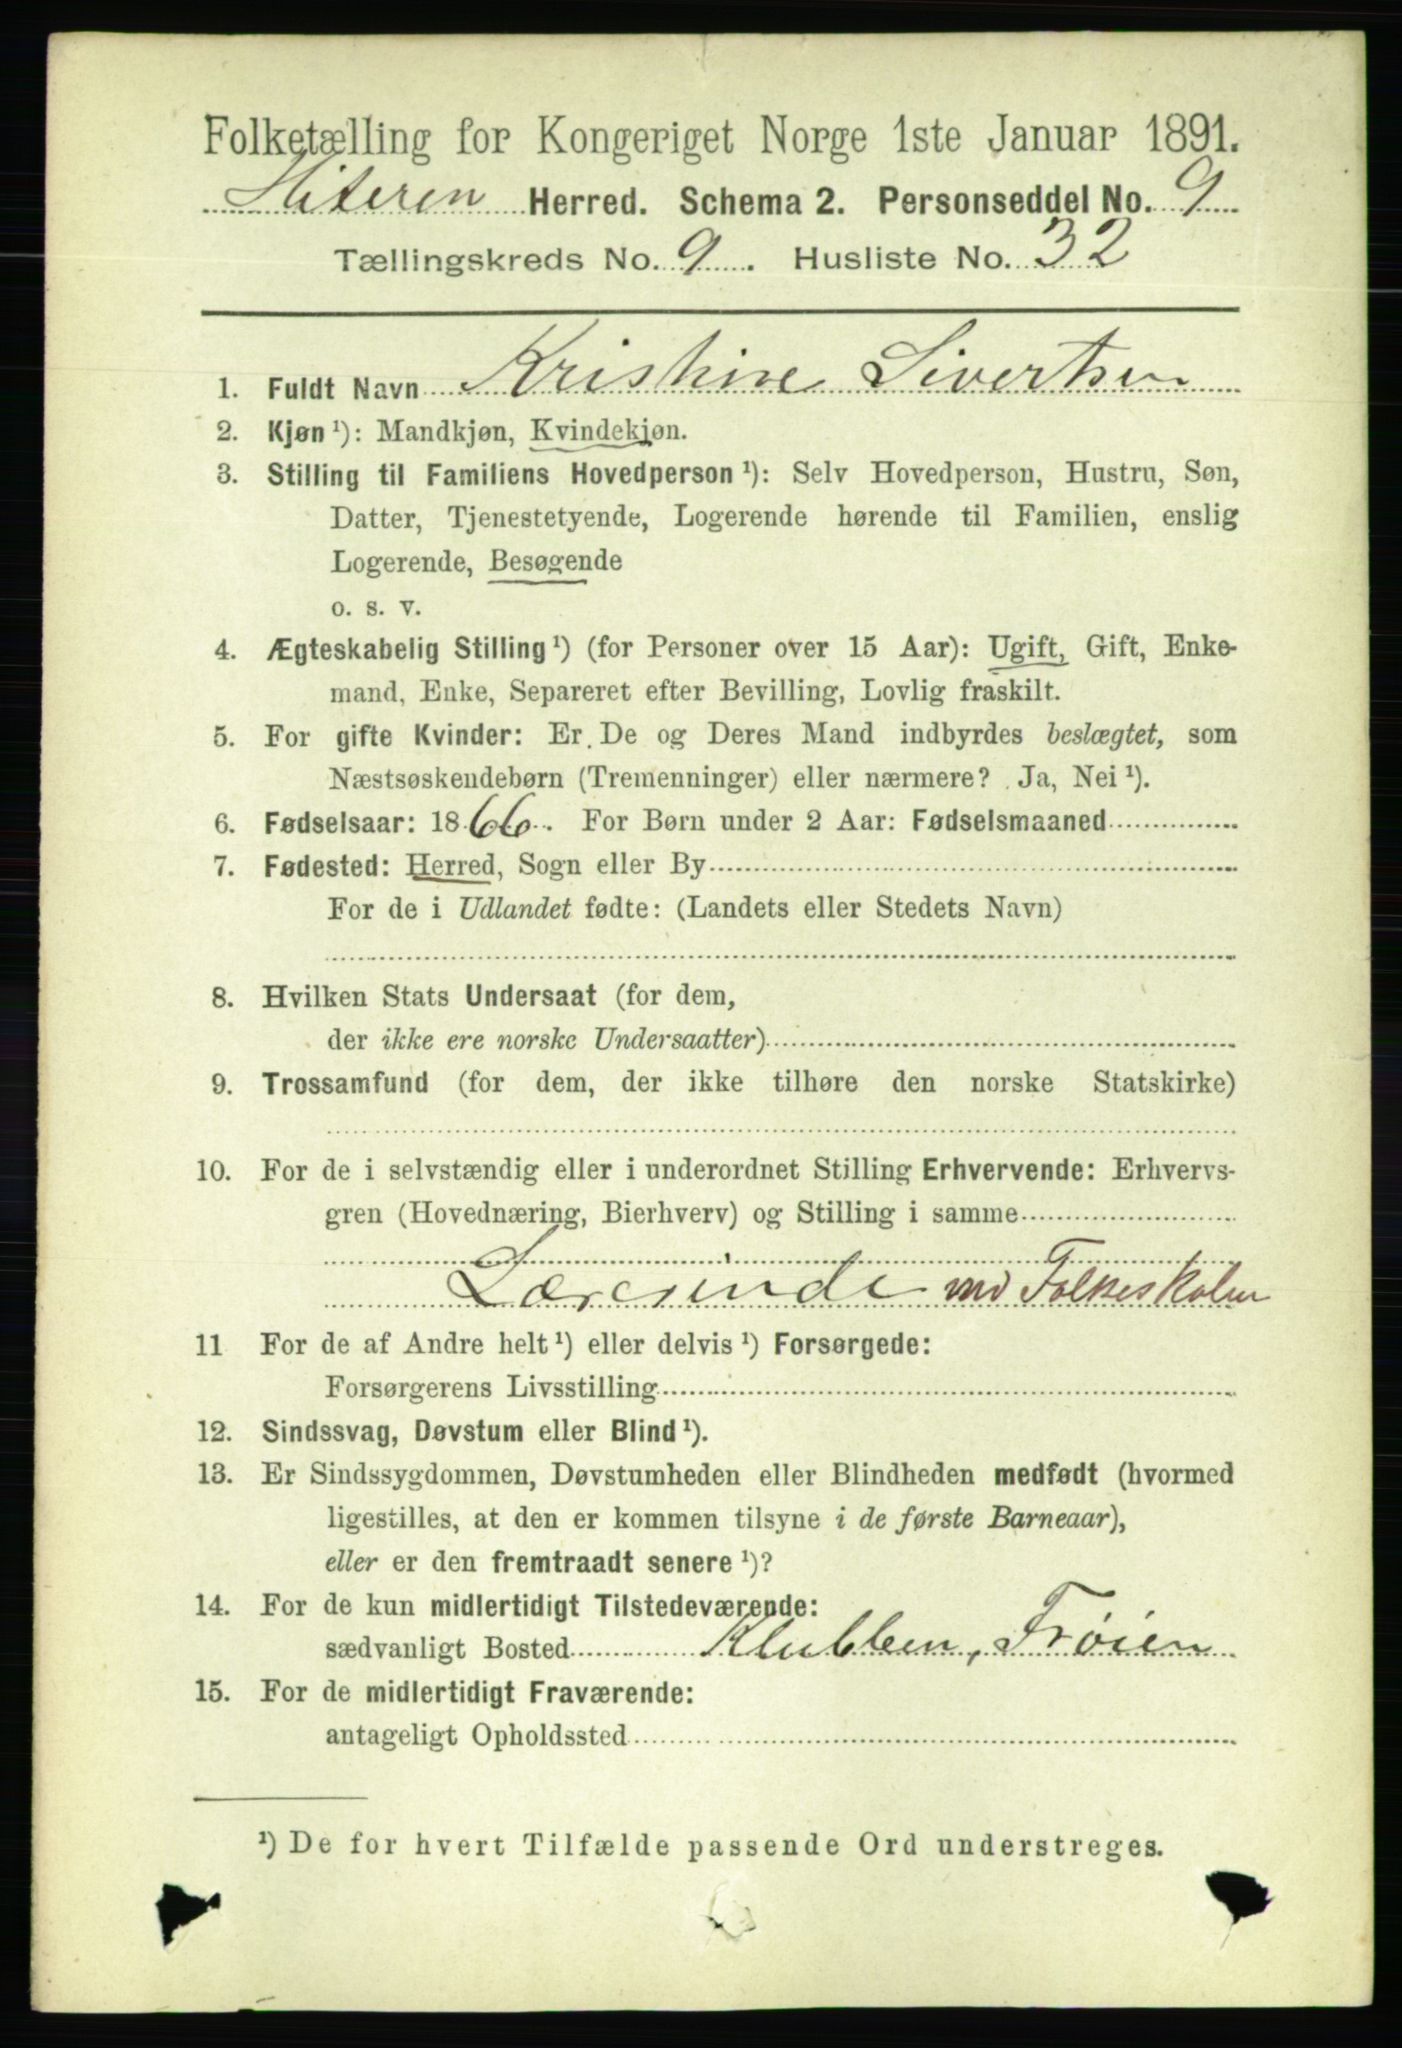 Folketælling for Kongeriget Norge 1ste Januar 1891.
Hiteren Herred. Schema 2. Personseddel No. 9
Tællingskreds No. 9. Husliste No. 32
1. Fuldt Navn Kristine Sivertsen
2. Kjøn ¹): Mandkjøn, Kvindekjøn.
3. Stilling til Familiens Hovedperson ¹): Selv Hovedperson, Hustru, Søn,
Datter, Tjenestetyende, Logerende hørende til Familien, enslig
Logerende, Besøgende
o. s. v.
4. Ægteskabelig Stilling ¹) (for Personer over 15 Aar): Ugift, Gift, Enke-
mand, Enke, Separeret efter Bevilling, Lovlig fraskilt.
5. For gifte Kvinder: Er De og Deres Mand indbyrdes beslægtet, som
Næstsøskendebørn (Tremenninger) eller nærmere? Ja, Nei ¹).
6. Fødselsaar: 1866. For Børn under 2 Aar: Fødselsmaaned
7. Fødested: Herred, Sogn eller By
For de i Udlandet fødte: (Landets eller Stedets Navn)
8. Hvilken Stats Undersaat (for dem,
der ikke ere norske Undersaatter)
9. Trossamfund (for dem, der ikke tilhøre den norske Statskirke)
10. For de i selvstændig eller i underordnet Stilling Erhvervende: Erhvervs-
gren (Hovednæring, Bierhverv) og Stilling i samme
Lærerinde ved Folkeskolen
11 For de af Andre helt ¹) eller delvis ¹) Forsørgede:
Forsørgerens Livsstilling
12. Sindssvag, Døvstum eller Blind ¹).
13. Er Sindssygdommen, Døvstumheden eller Blindheden medfødt (hvormed
ligestilles, at den er kommen tilsyne i de første Barneaar),
eller er den fremtraadt senere ¹)?
14. For de kun midlertidigt Tilstedeværende:
sædvanligt Bosted Klubben, Frøien
15. For de midlertidigt Fraværende:
antageligt Opholdssted
¹) De for hvert Tilfælde passende Ord understreges.